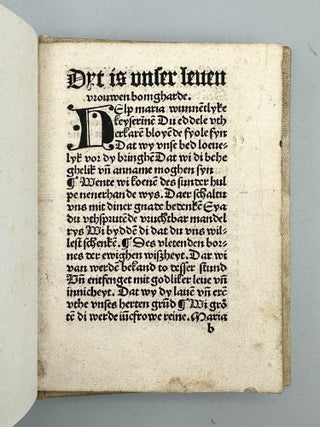 Dyt is vnser leuen
vrouwen bomgharde.
HElp maria wunnẽtlyke
keyserinẽ Du eddele vth
erkarẽ bloyẽde fyole fyn
Dat wy vnse bed loeue-
lyk vor dy bringhẽ Dat wi di behe
ghelik vñ anname moghen syn
¶ Wente wi koenẽ des sunder hul
pe nenerhande wys. Daer schaltu
vns mit diner gnade bedenkẽ Eya
du vthsprutẽde vruchtbar mandel
rys Wi byddẽ di dat du vns wil-
lest schenkẽ. ¶ Des vletenden bor-
nes der ewighen wiszheyt. Dar wi
van werdẽ beland to desser stund
Vñ entfenget mit godliker leue vñ
innicheyt. Dat wy dy lauẽ vñ erẽ
vthe vnses herten grũd ¶ Wi grö
tẽ di werde iũcfrowe reine. Maria
b